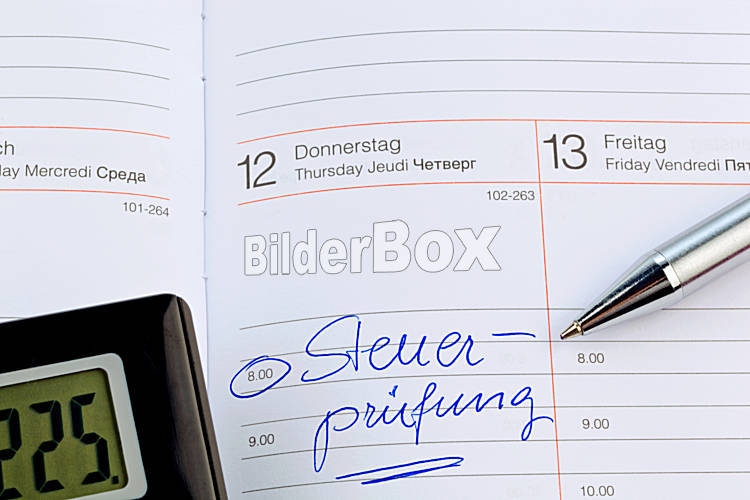 ch
ay Mercredi Среда
101-264
12 Donnerstag
Thursday Jeudi Четверг
102-263
13 Freitag
Friday Vendredi Пят
BilderBox
8.00 Steuer-
prüfung
9.00
8.00
9.00
10.00
225.